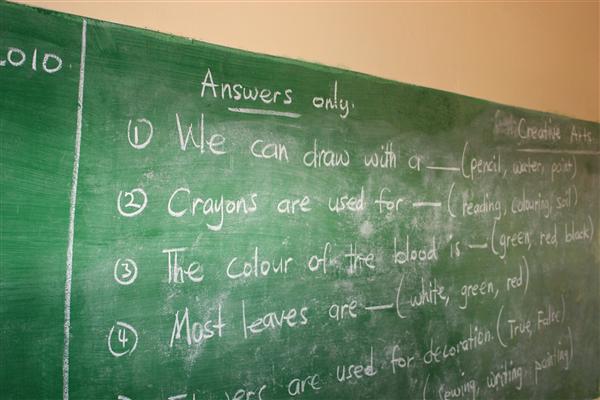 2010.
Creative Arts
Answers only.
① We can draw with a — (pencil, water, paint)
② Crayons are used for — (reading, colouring, soil)
③ The colour of the blood is — (green, red, black)
④ Most leaves are — (white, green, red)
are used for decoration. (True, False)
(sewing, writing, painting)